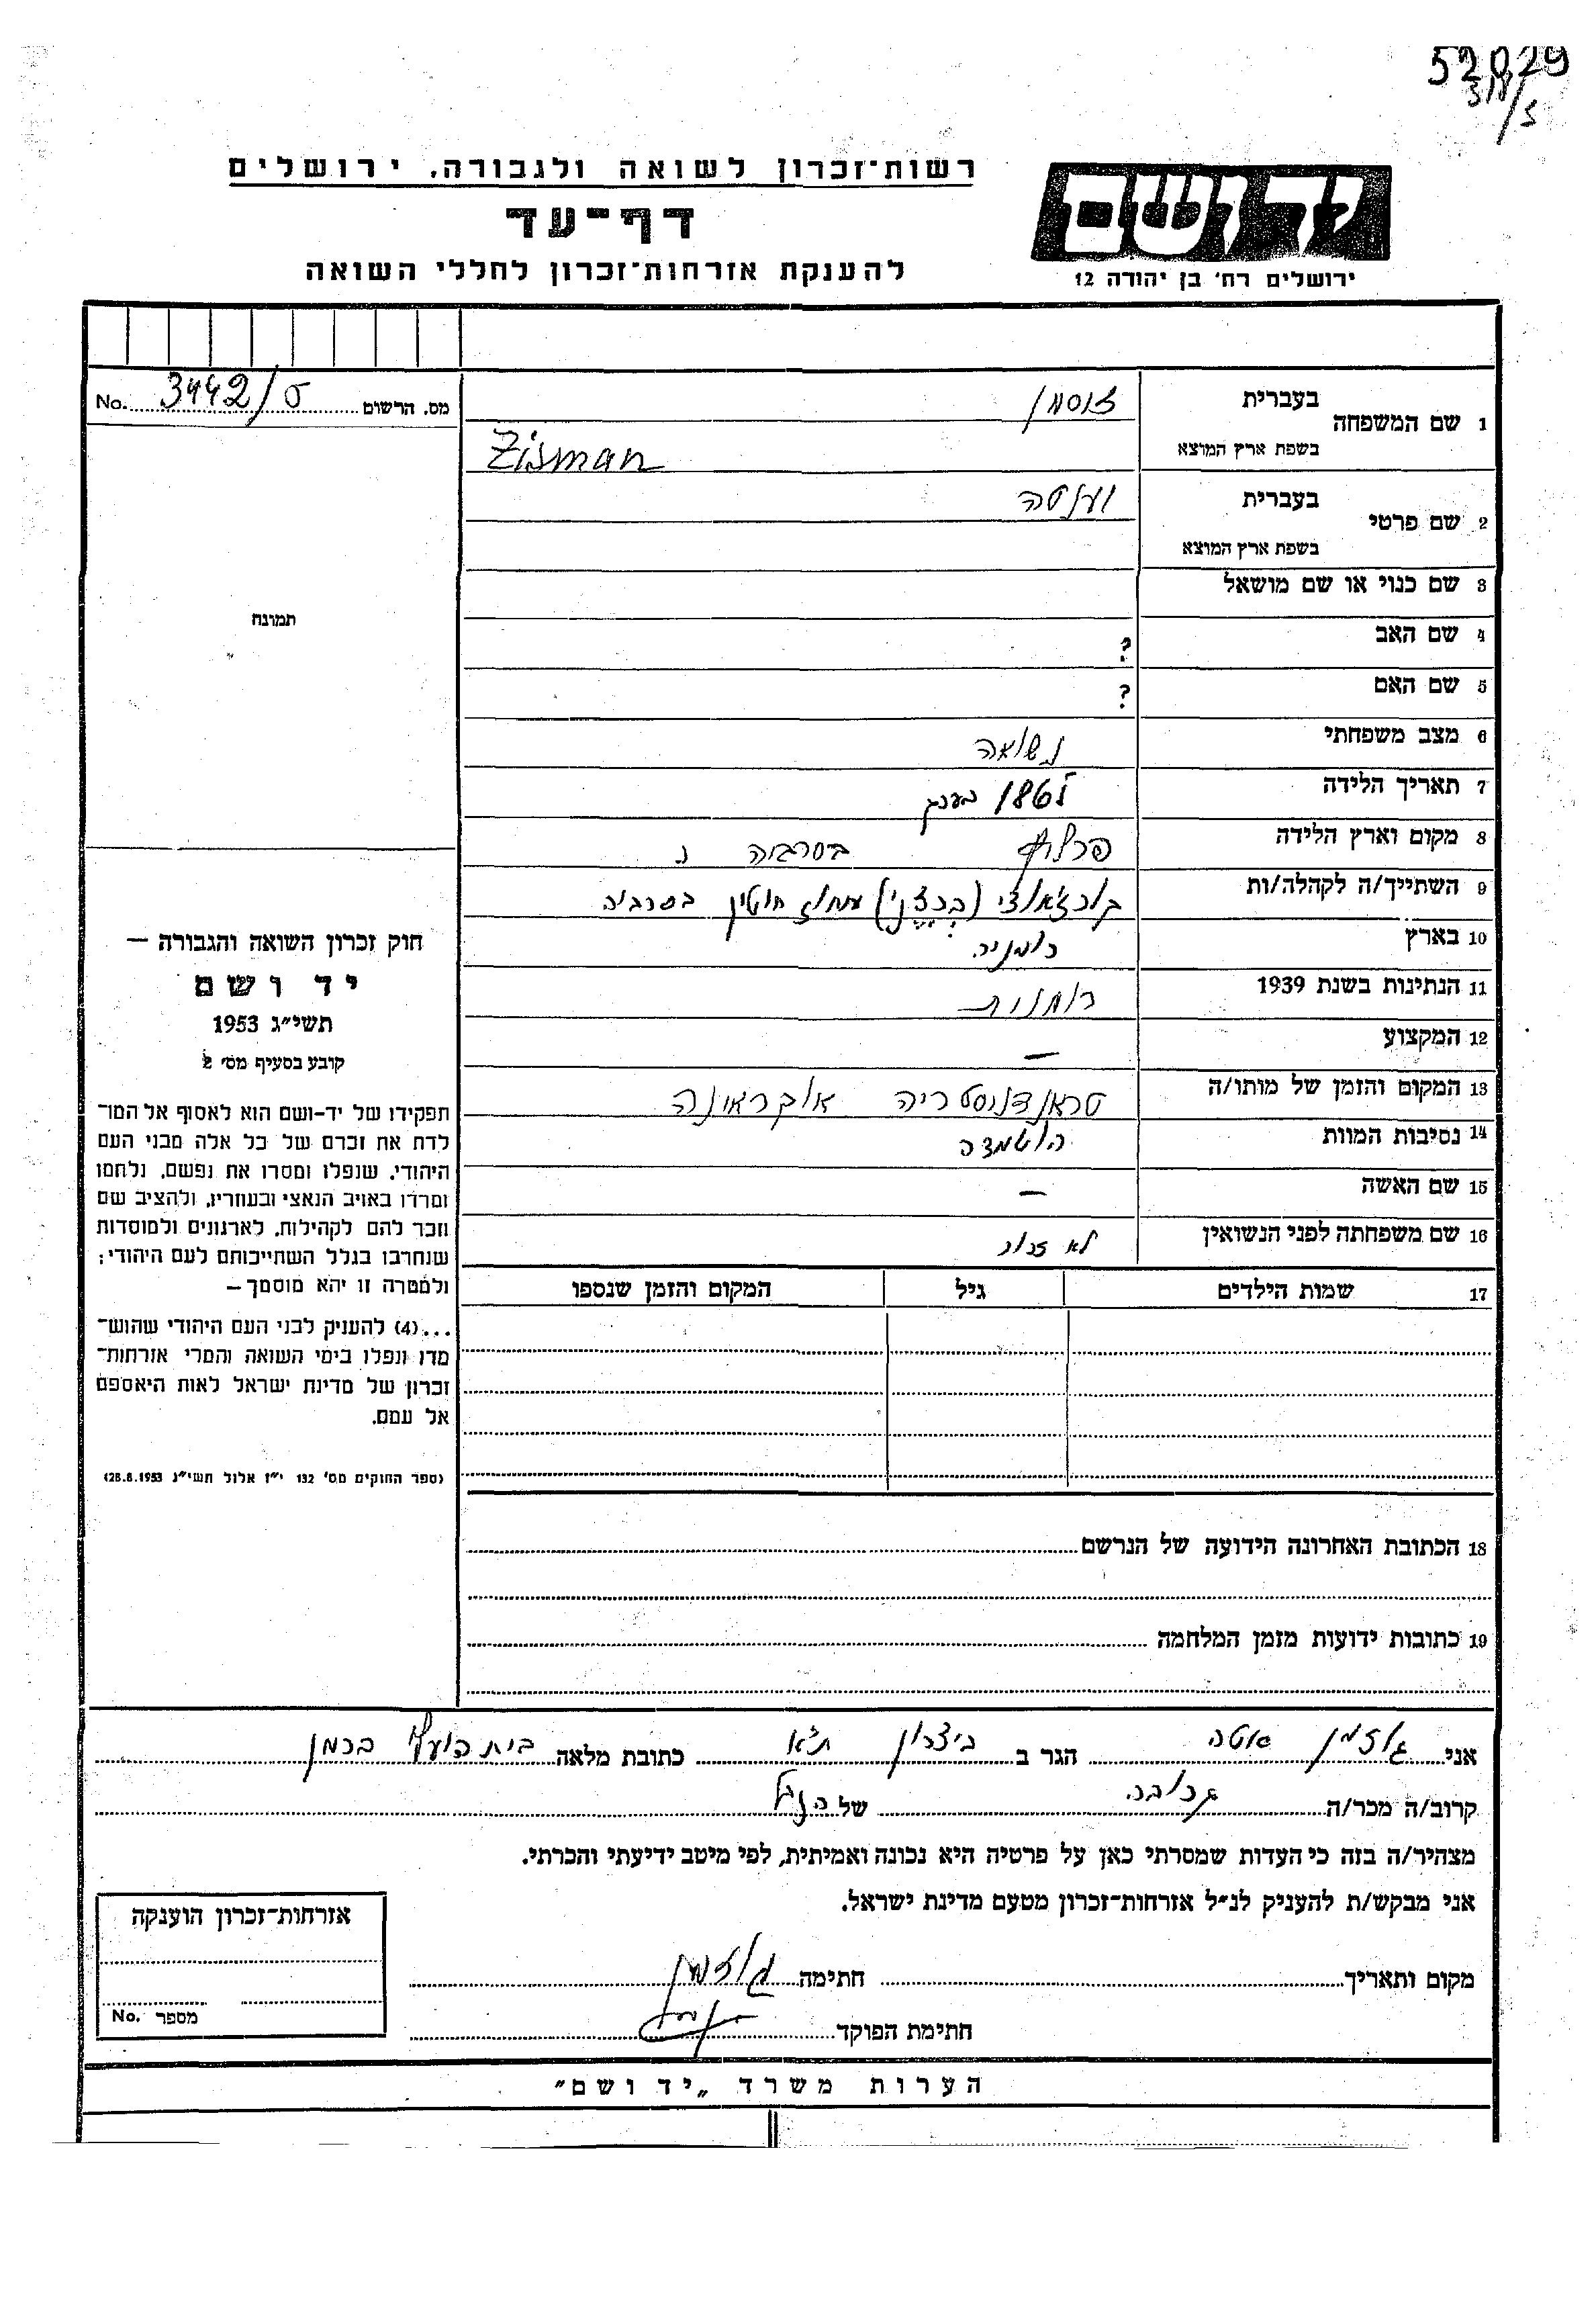 52029
318/5
ידושם
ירושלים רח' בן יהודה 12
רשות־זכרון לשואה ולגבורה, ירושלים
דף־עד
להענקת אזרחות־זכרון לחללי השואה
מס. הרשום 3442/ס No.
1 שם המשפחה
בעברית זוסמן
בשפת ארץ המוצא Zisman
2 שם פרטי
בעברית יענטה
בשפת ארץ המוצא
3 שם כנוי או שם מושאל
4 שם האב ?
5 שם האם ?
6 מצב משפחתי נשואה
7 תאריך הלידה 1867 בערך
8 מקום וארץ הלידה בסרביה
9 השתייך/ה לקהלה/ות מחוז חוטין בסרביה
10 בארץ רומניה
11 הנתינות בשנת 1939 רומנית
12 המקצוע —
13 המקום והזמן של מותו/ה טראנדניסטריה אוקראינה
14 נסיבות המוות הושמדה
15 שם האשה —
16 שם משפחתה לפני הנשואין לא זכור
17 שמות הילדים גיל המקום והזמן שנספו
18 הכתובת האחרונה הידועה של הנרשם
19 כתובות ידועות מזמן המלחמה
תמונה
חוק זכרון השואה והגבורה —
יד ושם
תשי״ג 1953
קובע בסעיף מס׳ 2
תפקידו של יד-ושם הוא לאסוף אל המו־
לדת את זכרם של כל אלה מבני העם
היהודי, שנפלו ומסרו את נפשם, נלחמו
ומרדו באויב הנאצי ובעוזריו, ולהציב שם
וזכר להם לקהילות, לארגונים ולמוסדות
שנחרבו בגלל השתייכותם לעם היהודי;
ולמטרה זו יהא מוסמך —
...(4) להעניק לבני העם היהודי שהוש־
מדו ונפלו בימי השואה והמרי אזרחות־
זכרון של מדינת ישראל לאות היאספם
אל עמם.
(ספר החוקים מס׳ 132 י״ז אלול תשי״ג 28.8.1953)
אני גוזמן הגר ב ביצרון ת״א כתובת מלאה בית
קרוב/ה מכר/ה קרובה של הנ״ל
מצהיר/ה בזה כי העדות שמסרתי כאן על פרטיה היא נכונה ואמיתית, לפי מיטב ידיעתי והכרתי.
אני מבקש/ת להעניק לנ״ל אזרחות־זכרון מטעם מדינת ישראל.
מקום ותאריך חתימה גוזמן
חתימת הפוקד
אזרחות־זכרון הוענקה
מספר No.
הערות משרד „יד ושם״